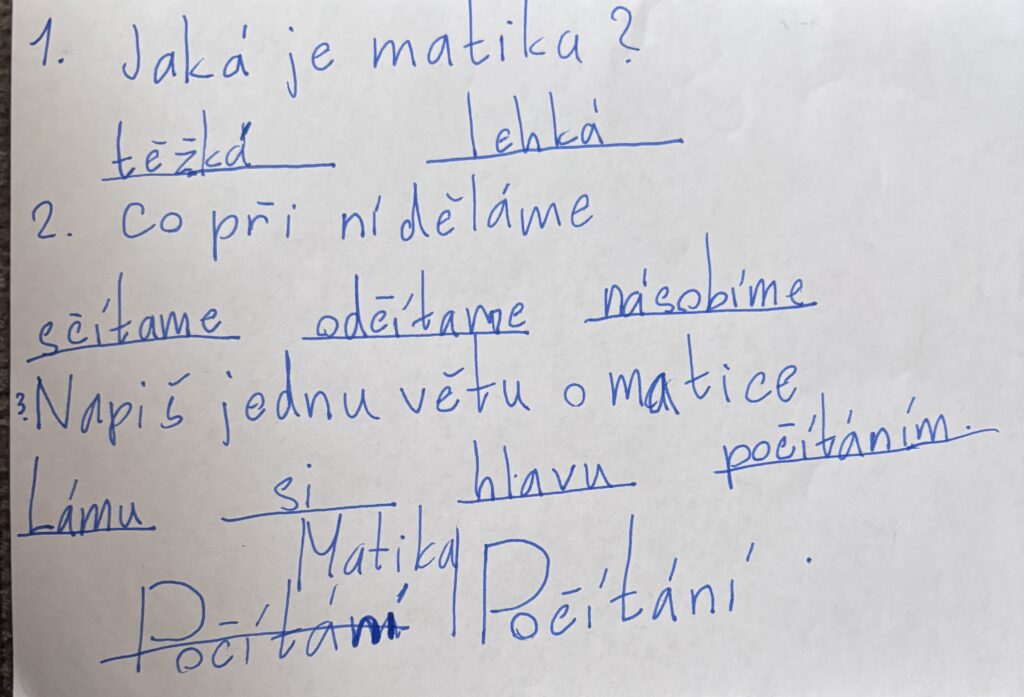 1. Jaká je matika?
těžká lehká
2. Co při ní děláme
sčítame odčítame násobíme
3. Napiš jednu větu o matice
Lámu si hlavu počítáním.
Matika
Počítání Počítání